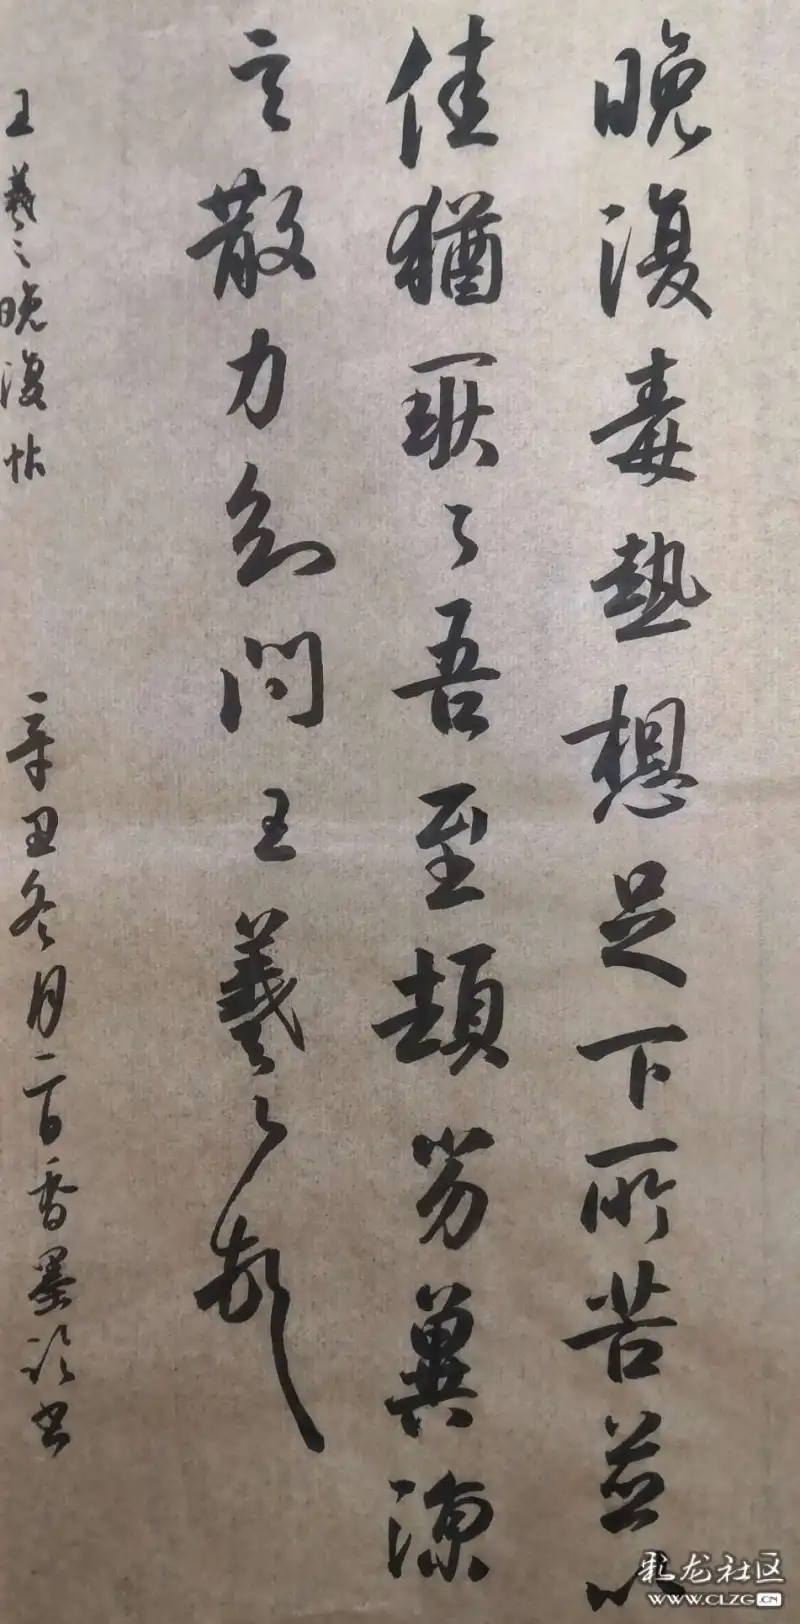 晚復毒熱想足下所苦並以
佳猶耿々吾至頓劣冀涼
言散力知問王羲之報
王羲之晚復帖
辛丑冬月二百香墨 書
彩龙社区
WWW.CLZG.CN